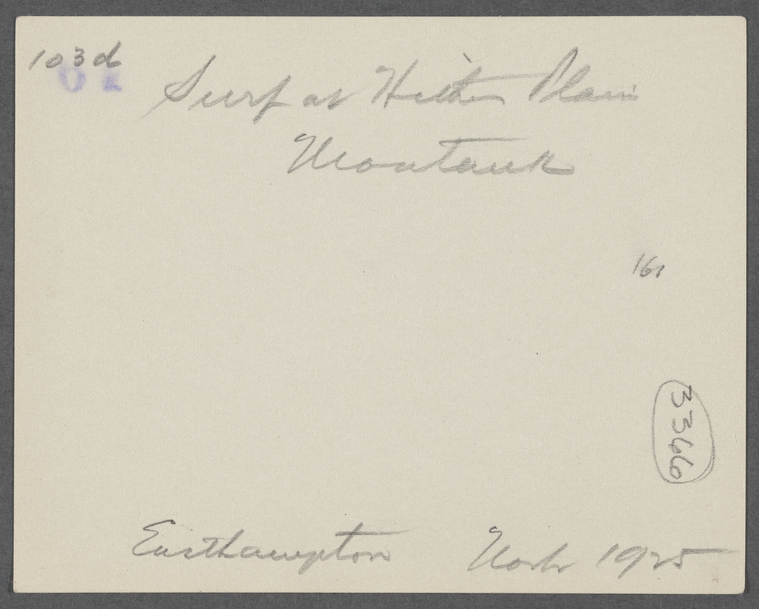 103d
Surf at Hither Plain
Montauk
161
3366
Easthampton 1925